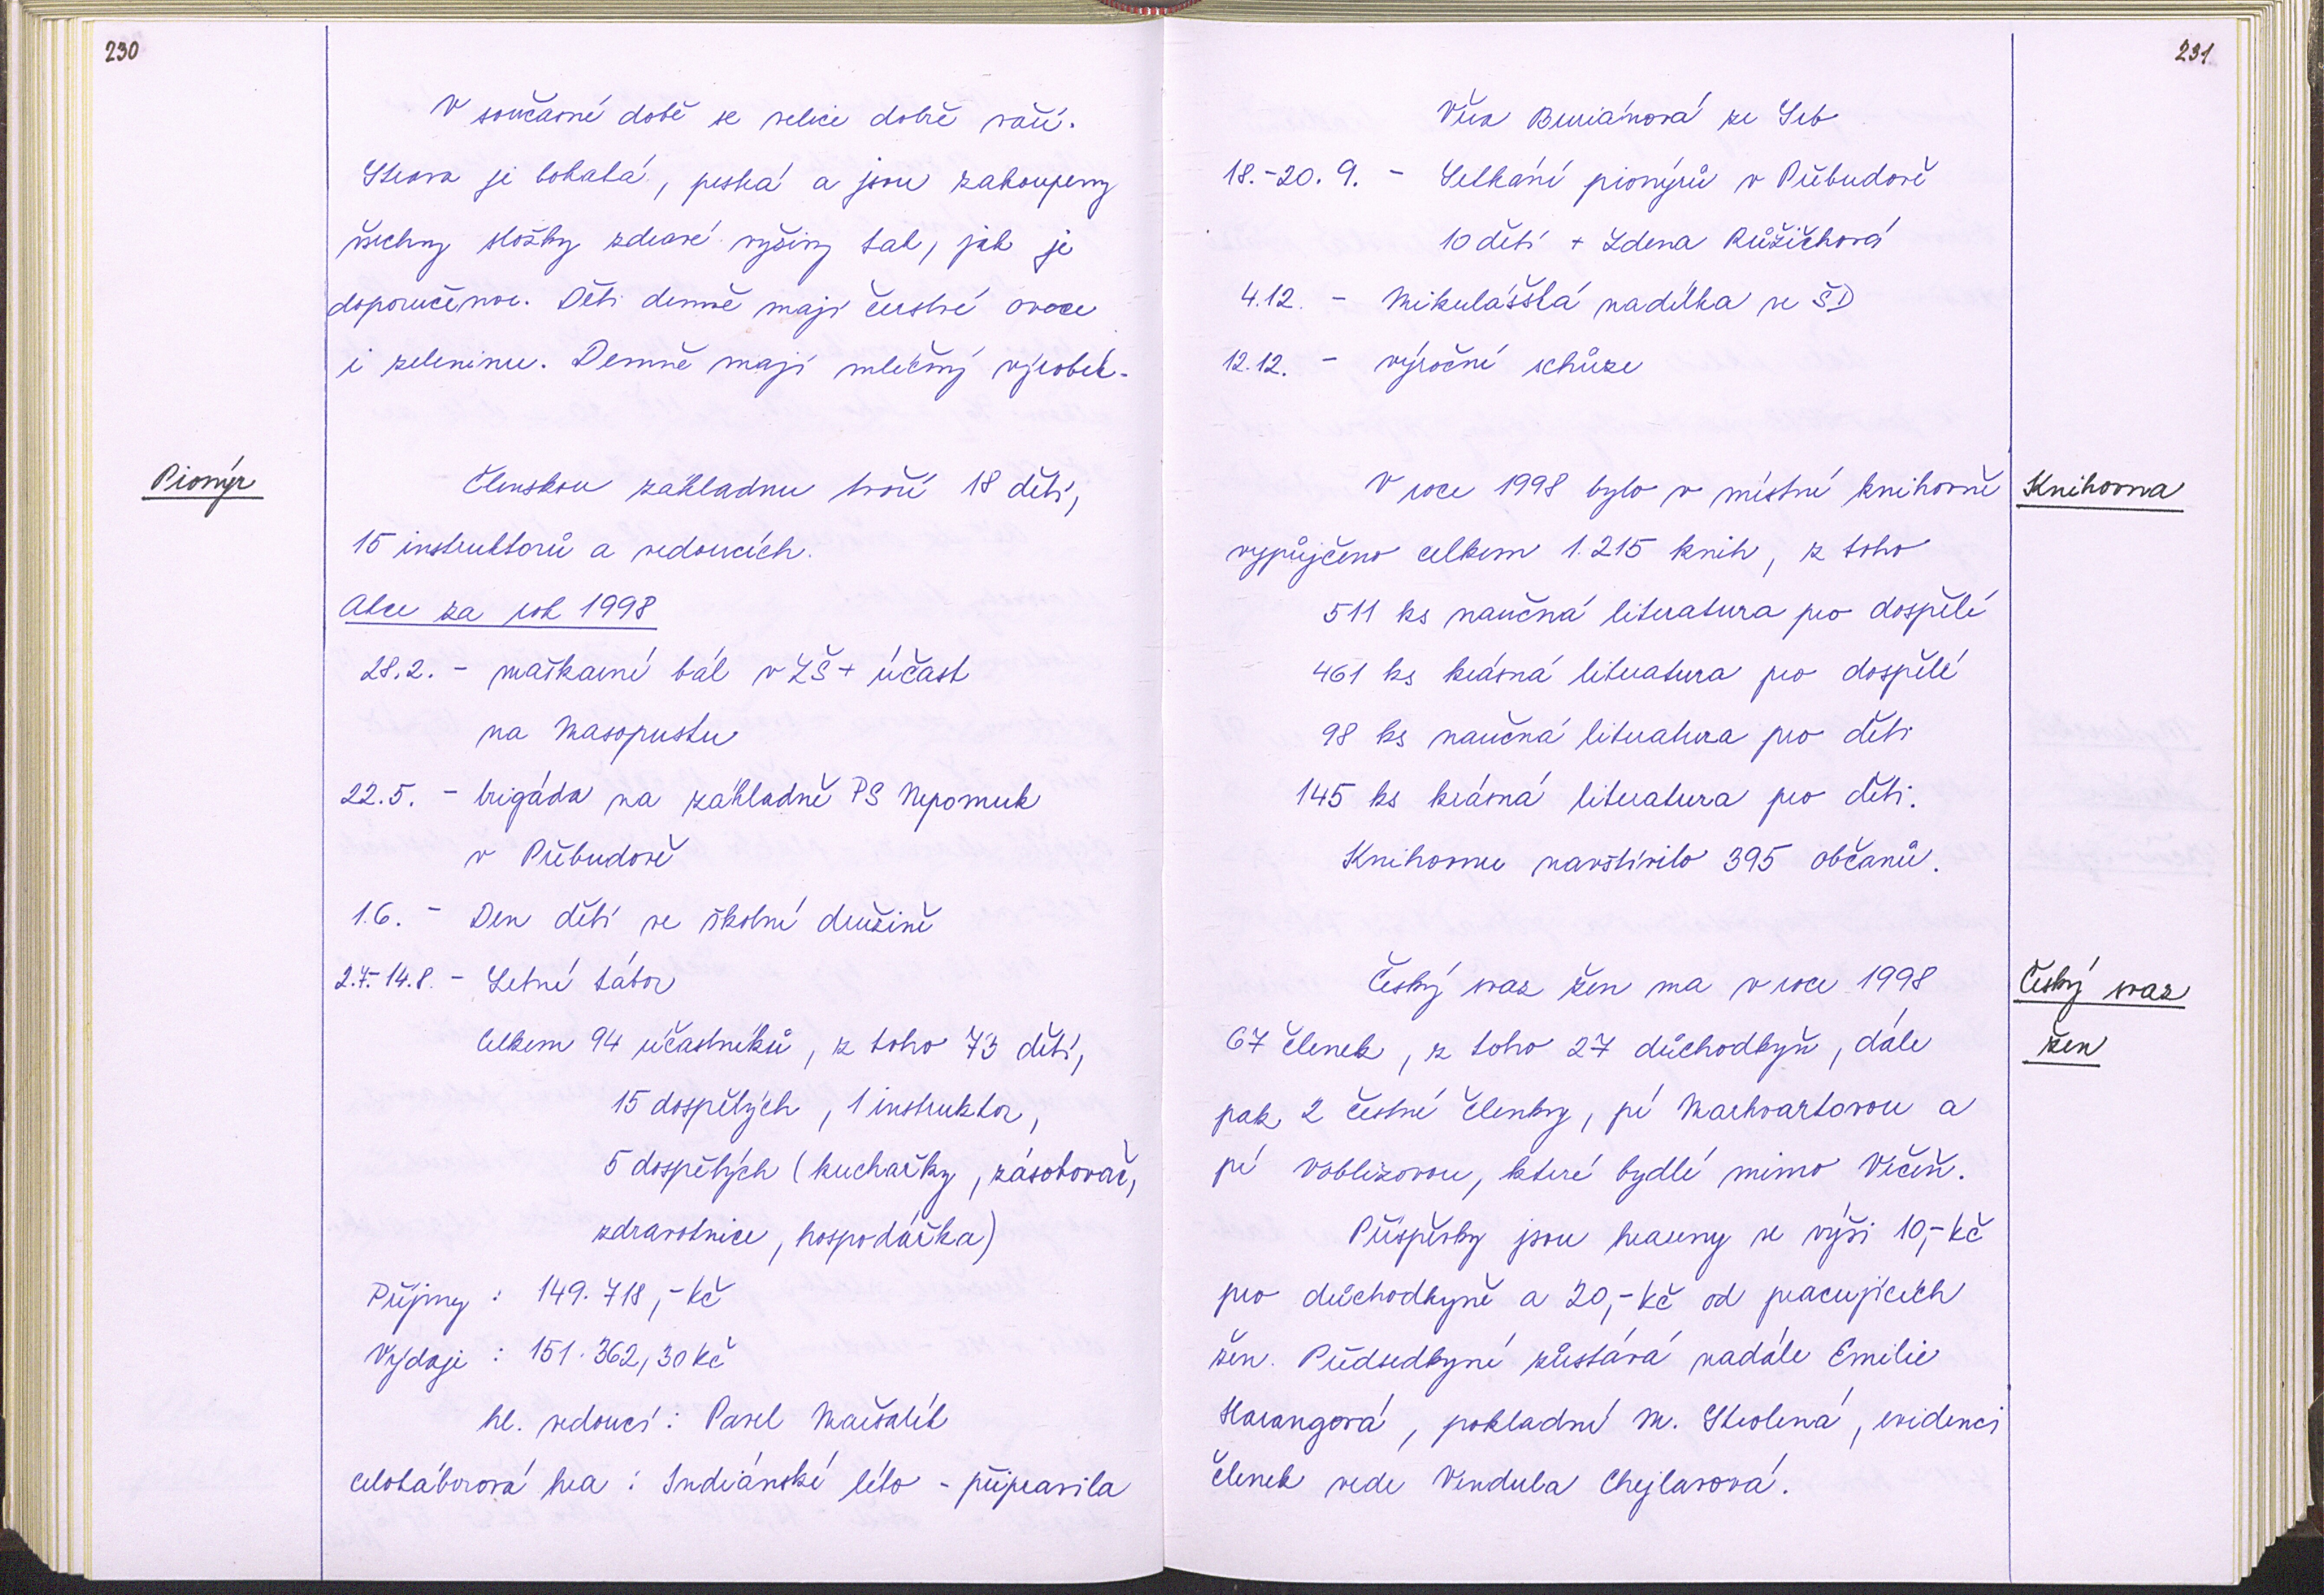 230
V současné době se velice dobře vaří.
Strava je bohatá, pestrá a jsou zakoupeny
všechny složky zdravé výživy tak, jak je
doporučeno. Děti denně mají čerstvé ovoce
i zeleninu. Denně mají mléčný výrobek.
Pionýr
Členskou základnu tvoří 18 dětí,
15 instruktorů a vedoucích.
Akce za rok 1998
28.2. - maškarní bál v ZŠ + účast
na Masopustu
22.5. - brigáda na základně PS Nepomuk
v Přebudově
1.6. - Den dětí ve školní družině
2.7.-14.8. - Letní tábor
Celkem 94 účastníků, z toho 73 dětí,
15 dospělých, 1 instruktor,
5 dospělých (kuchařky, zásobovač,
zdravotnice, hospodářka)
Příjmy : 149.718,- kč
Výdaje : 151.362,30 kč
hl. vedoucí : Pavel Maršalík
celotáborová hra : Indiánské léto - připravila
231
Věra Buriánová ze Srb
18.-20. 9. - Setkání pionýrů v Přebudově
10 dětí + Zdena Růžičková
4.12. - Mikulášská nadílka ve ŠD
12.12. - výroční schůze
Knihovna
V roce 1998 bylo v místní knihovně
vypůjčeno celkem 1.215 knih, z toho
511 ks naučná literatura pro dospělé
461 ks krásná literatura pro dospělé
98 ks naučná literatura pro děti
145 ks krásná literatura pro děti.
Knihovnu navštívilo 395 občanů.
Český svaz
žen
Český svaz žen ma v roce 1998
67 členek, z toho 27 důchodkyň, dále
pak 2 čestné členky, pí Markvartovou a
pí Voblizovou, které bydlí mimo Vrčeň.
Příspěvky jsou hrazeny ve výši 10,- kč
pro důchodkyně a 20,- kč od pracujících
žen. Předsedkyní zůstává nadále Emilie
Harangová, pokladní M. Strolená, evidenci
členek vede Vendula Chejlavová.